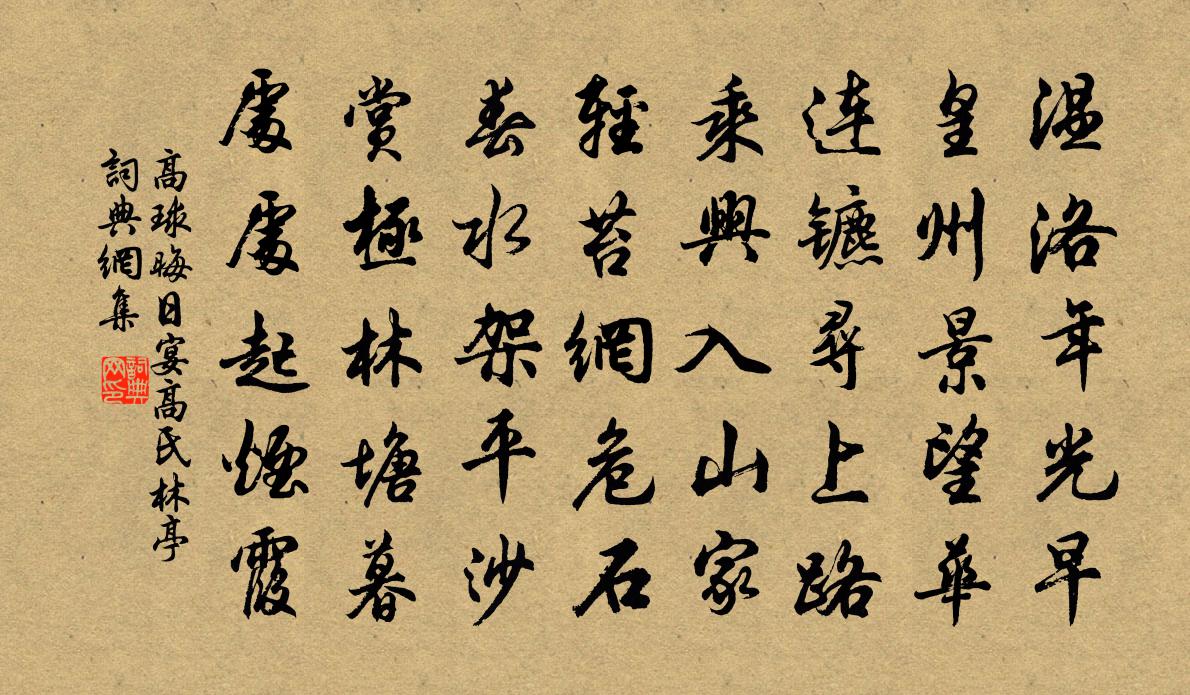 温洛年光早
皇州景望華
連镳尋上路
乘興入山家
輕苔網危石
春水架平沙
賞極林塘暮
處處起煙霞
高球晦日宴高氏林亭
詞典網集
詞典网印